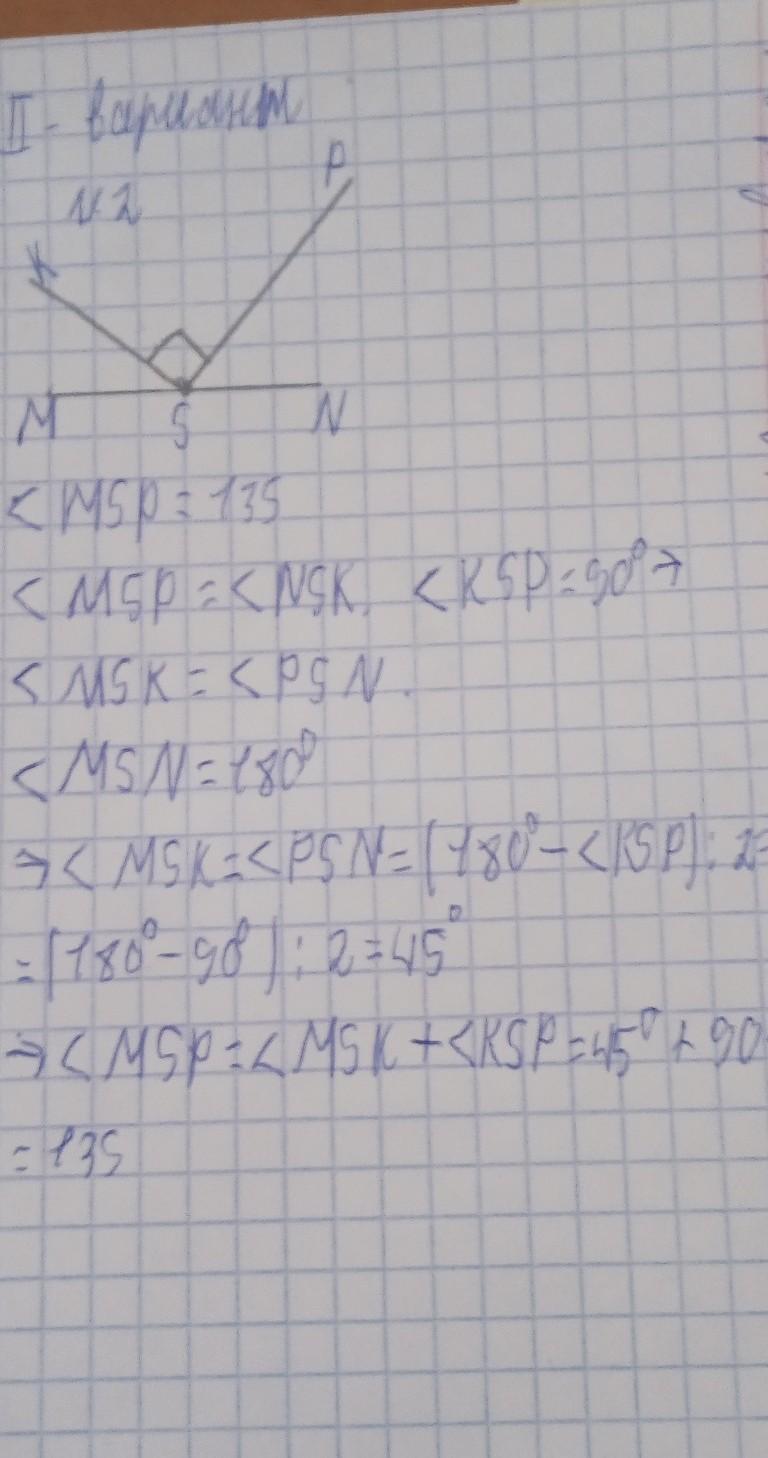 II - вариант
P
N2
K
M S N
< MSP = 135
< MSP = < NSK, < KSP = 90° →
< MSK = < PSN.
< MSN = 180°
→ < MSK = < PSN = (180° - < KSP) : 2 =
= (180° - 90°) : 2 = 45°
→ < MSP = < MSK + < KSP = 45° + 90
= 135